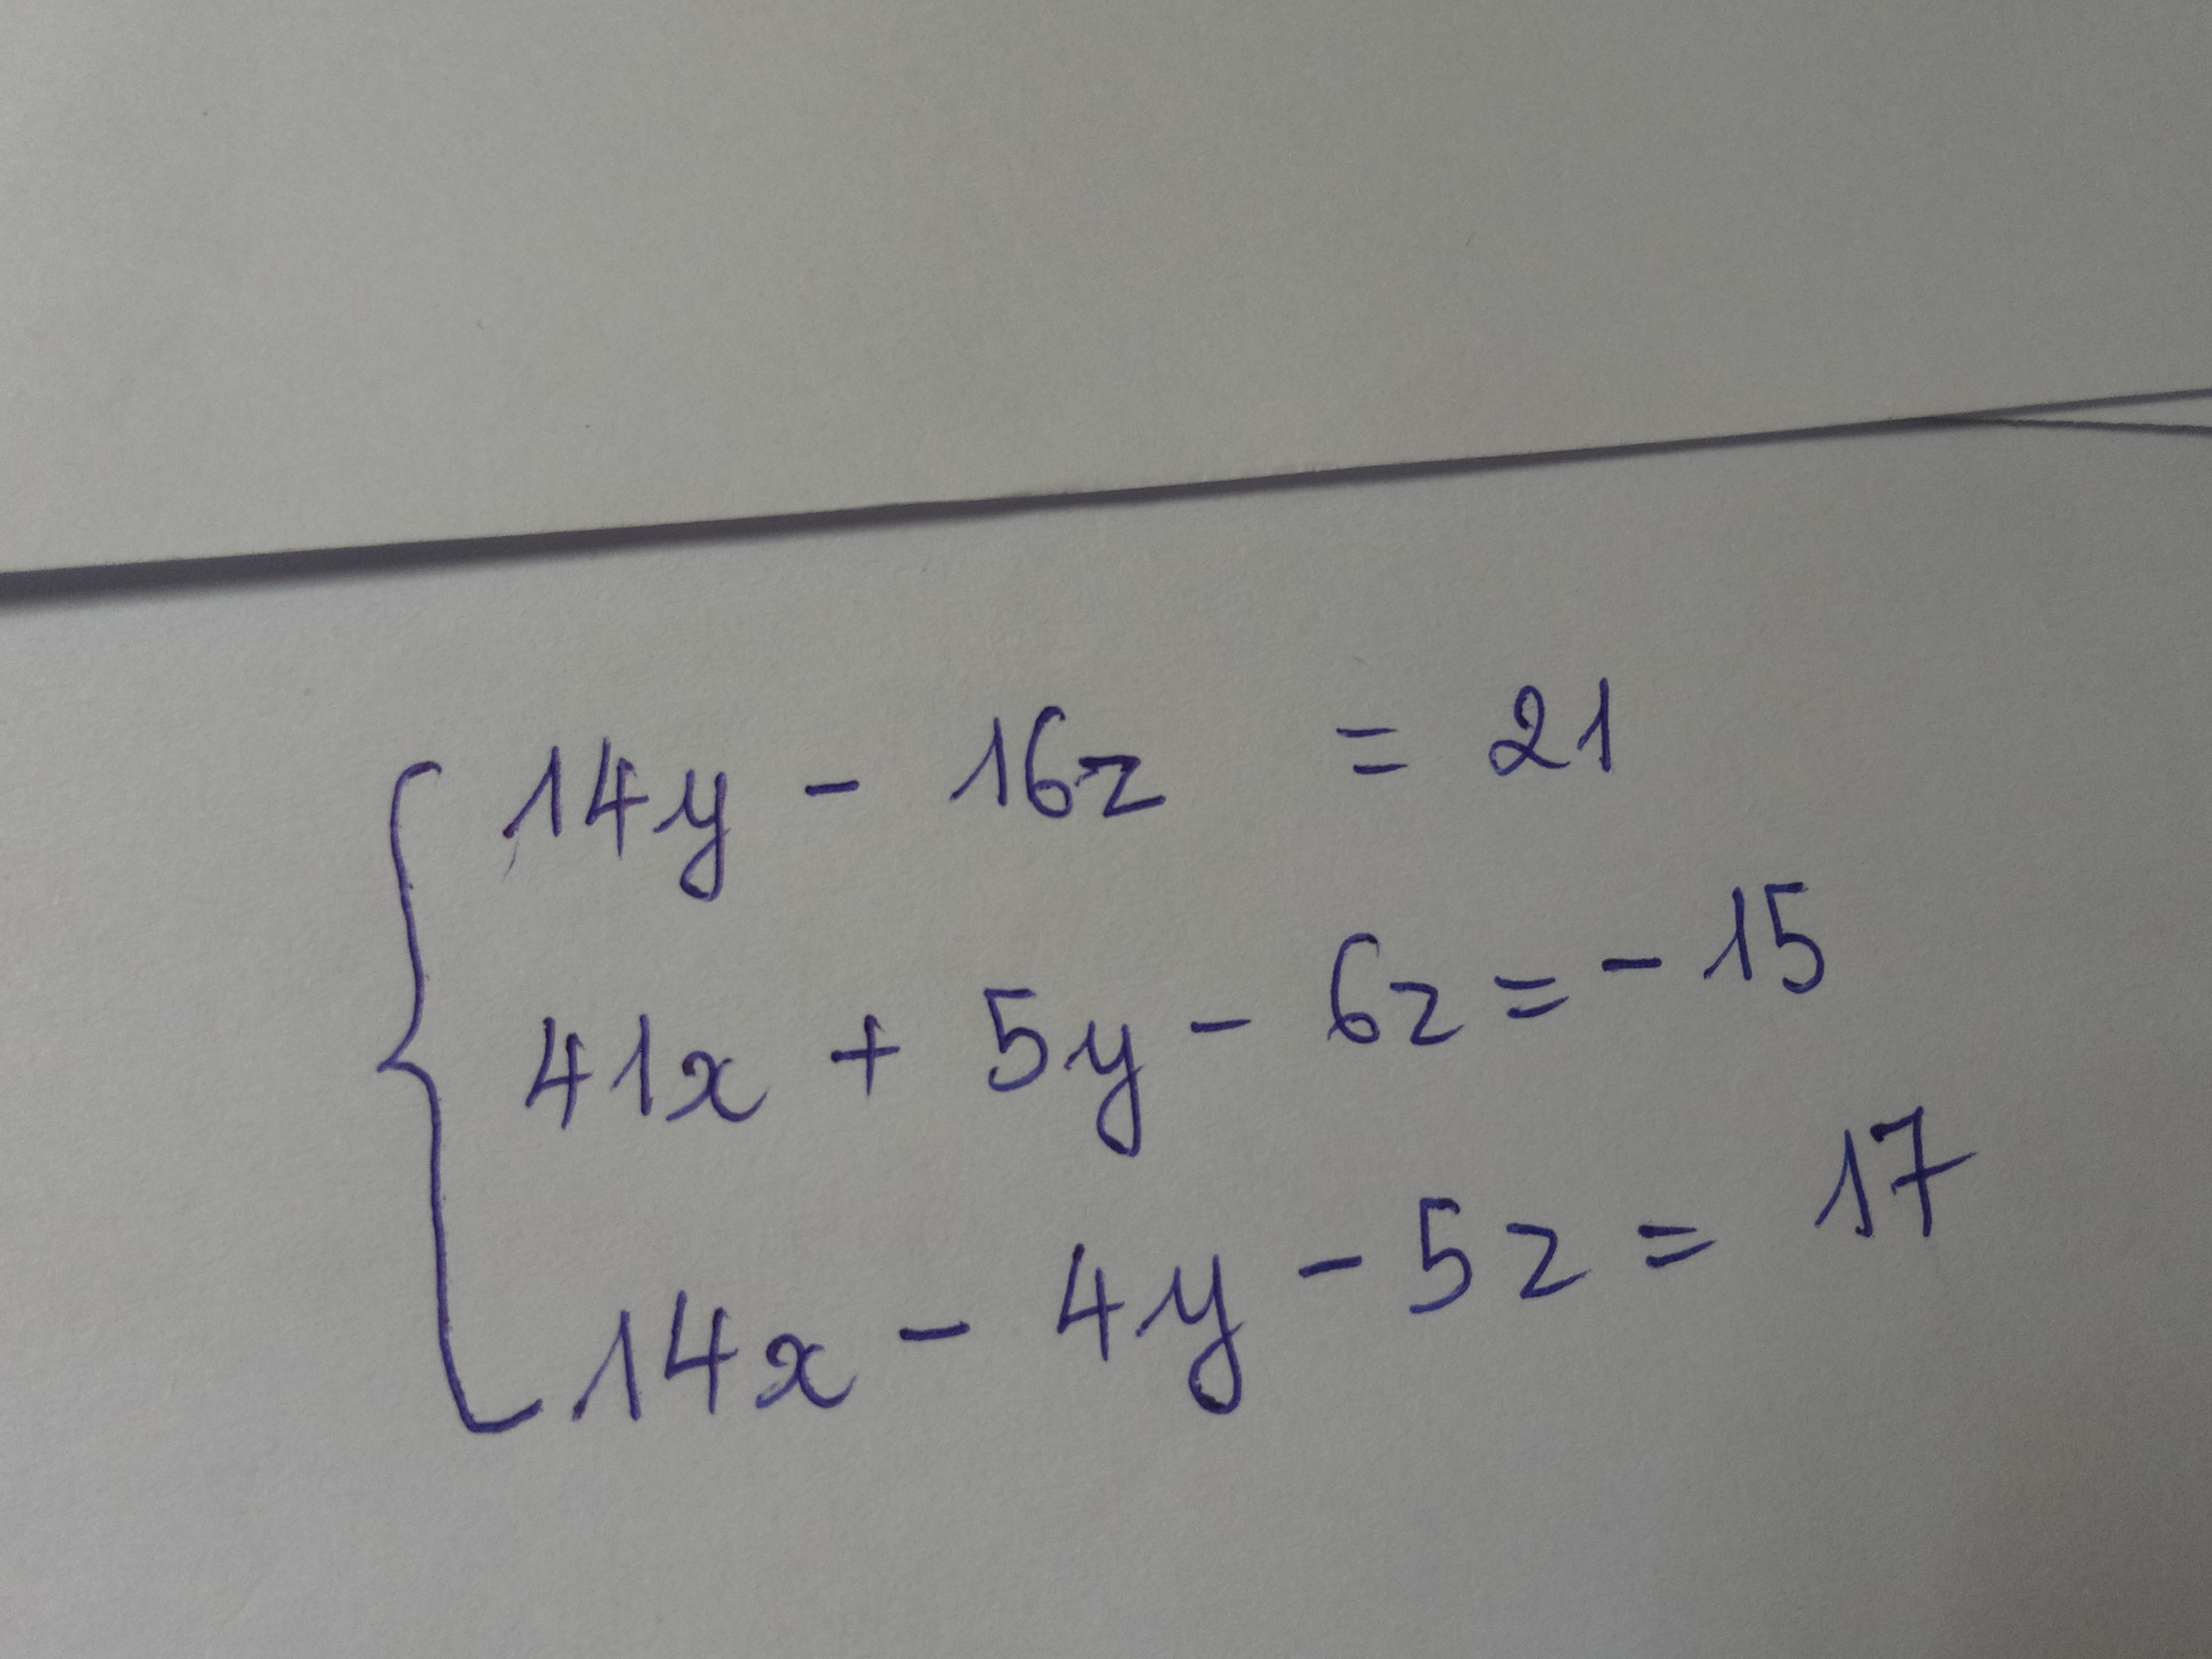 14y - 16z = 21
41x + 5y - 6z = - 15
14x - 4y - 5z = 17